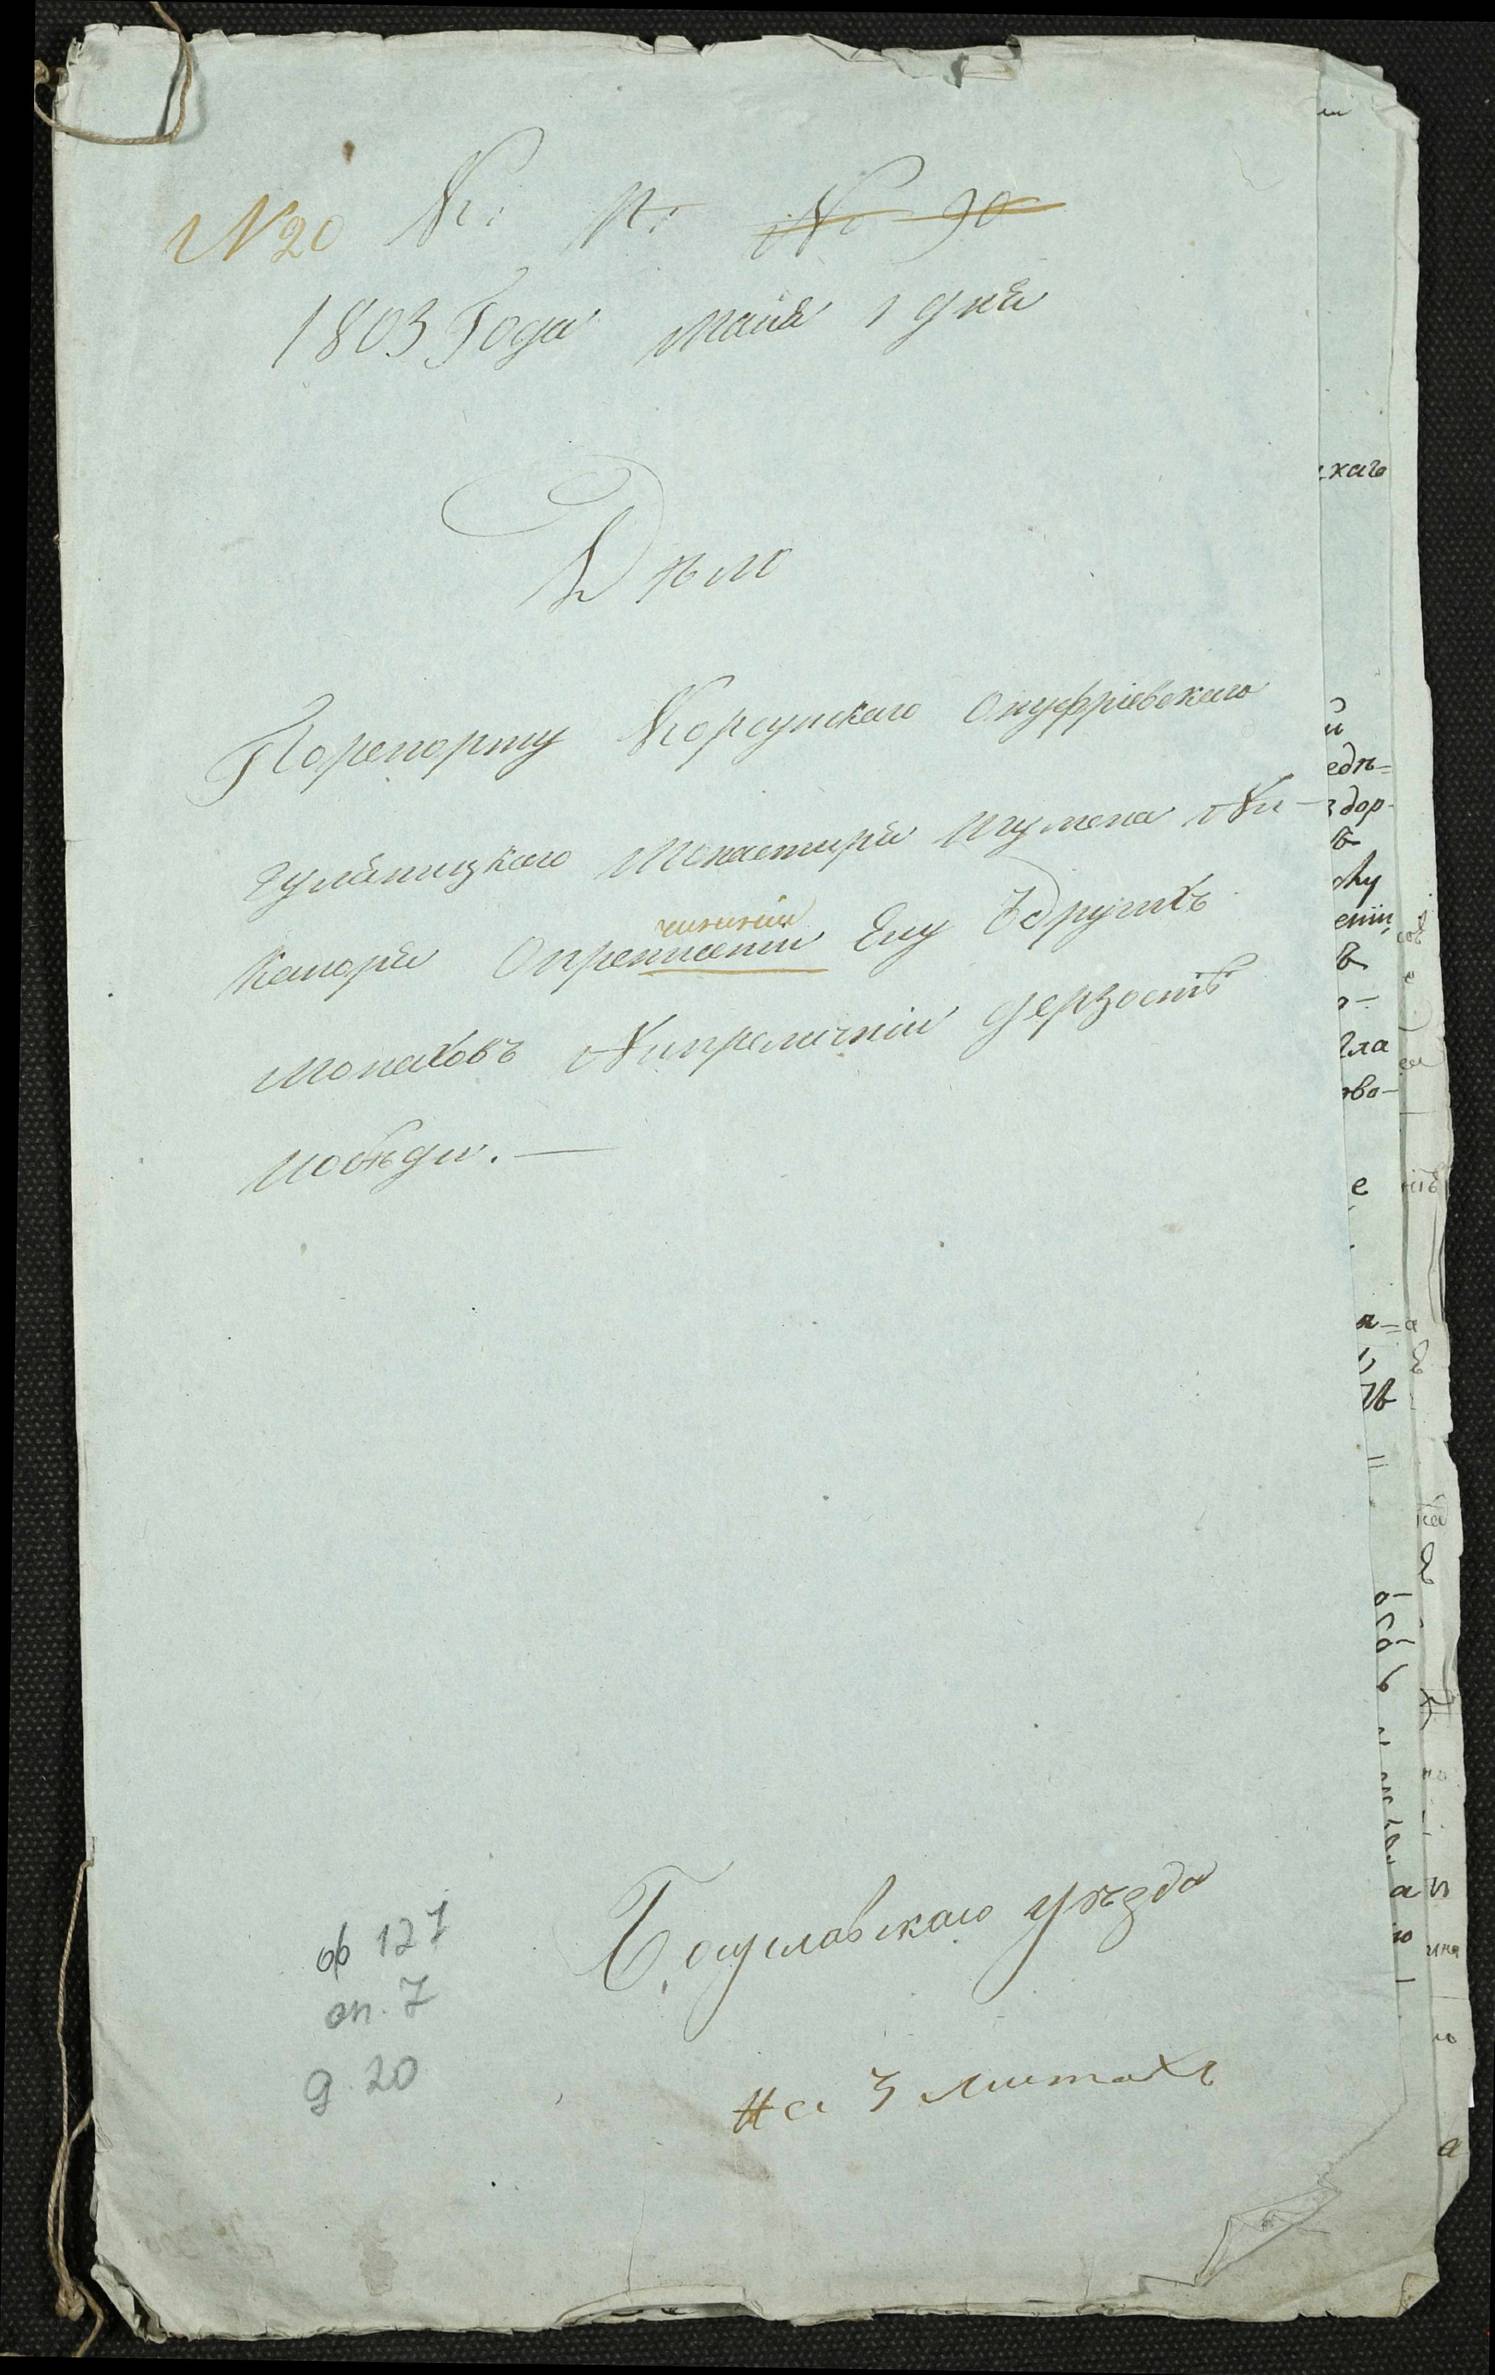 № 20 К: П: № 90
1803 Года маія 1 дня
Дѣло
Порепорту Корсунскаго Онуфріевскаго
гуляницкаго Монастиря Игумена Ни-
канора Опретиении Ему Ѿдругихъ
чинения
монаховъ Нипреличнія дерзостѣ
иобѣди. —
Богуславскаго уѣзда
На 3 листахъ
ф 127
оп. 7
д. 20